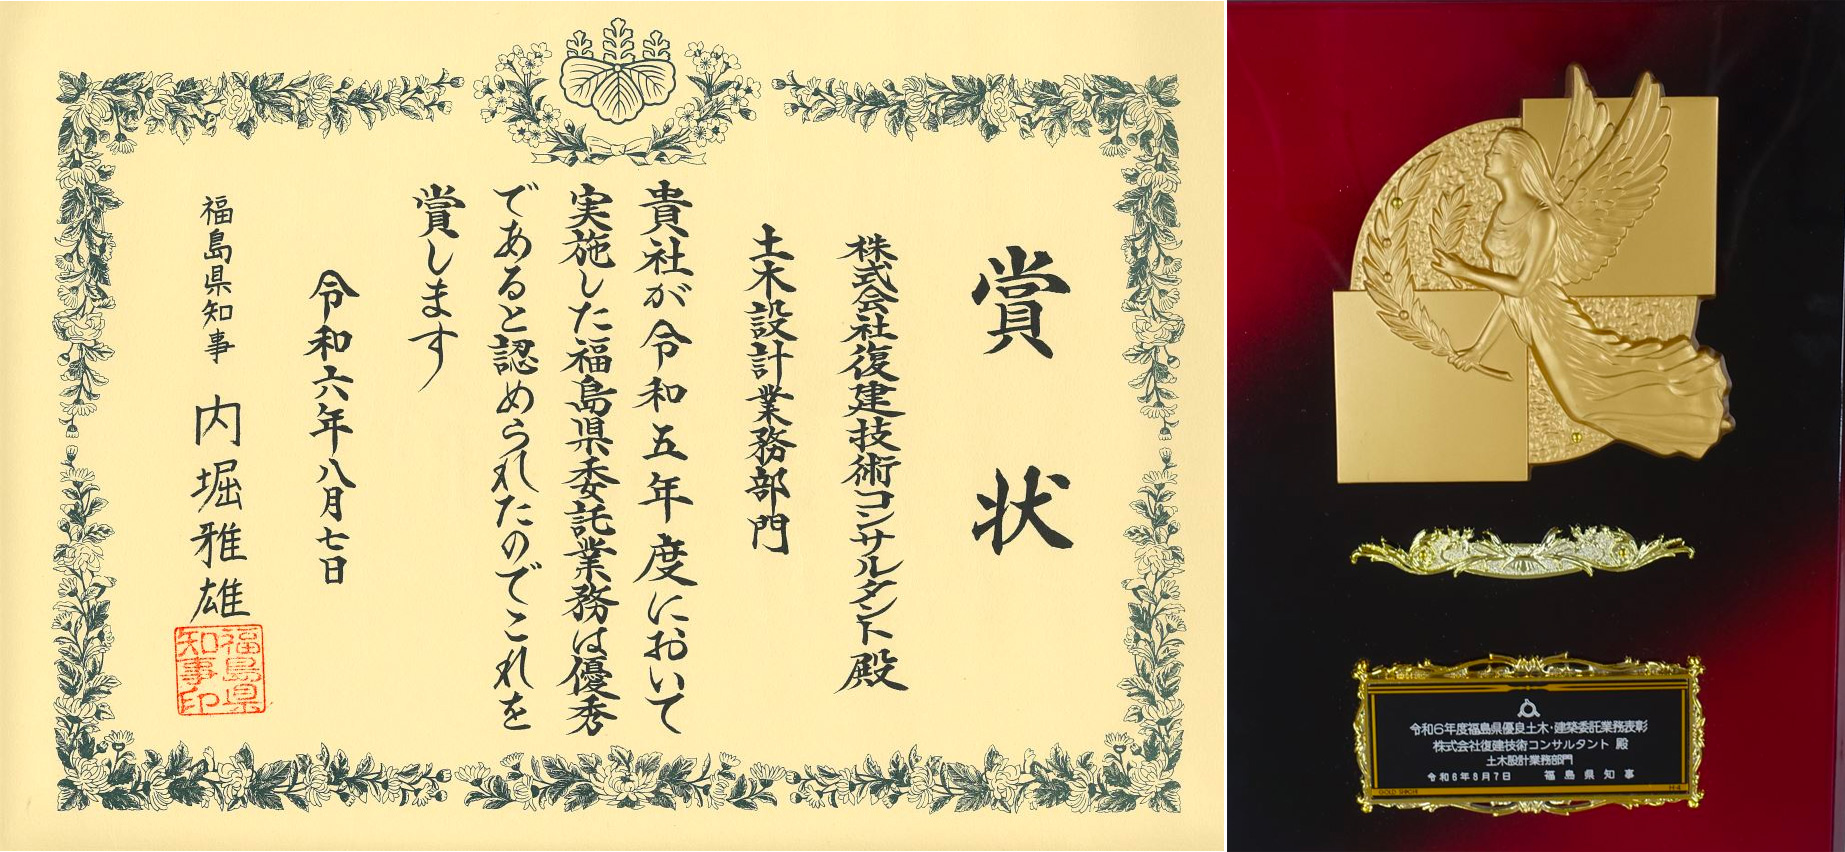 賞状
株式会社復建技術コンサルタント殿
土木設計業務部門
貴社が令和五年度において
実施した福島県委託業務は優秀
であると認められたのでこれを
賞します
令和六年八月七日
福島県知事 内堀雅雄
福島県
知事印
令和6年度福島県優良土木・建築委託業務表彰
株式会社復建技術コンサルタント 殿
土木設計業務部門
令和6年8月7日 福島県知事